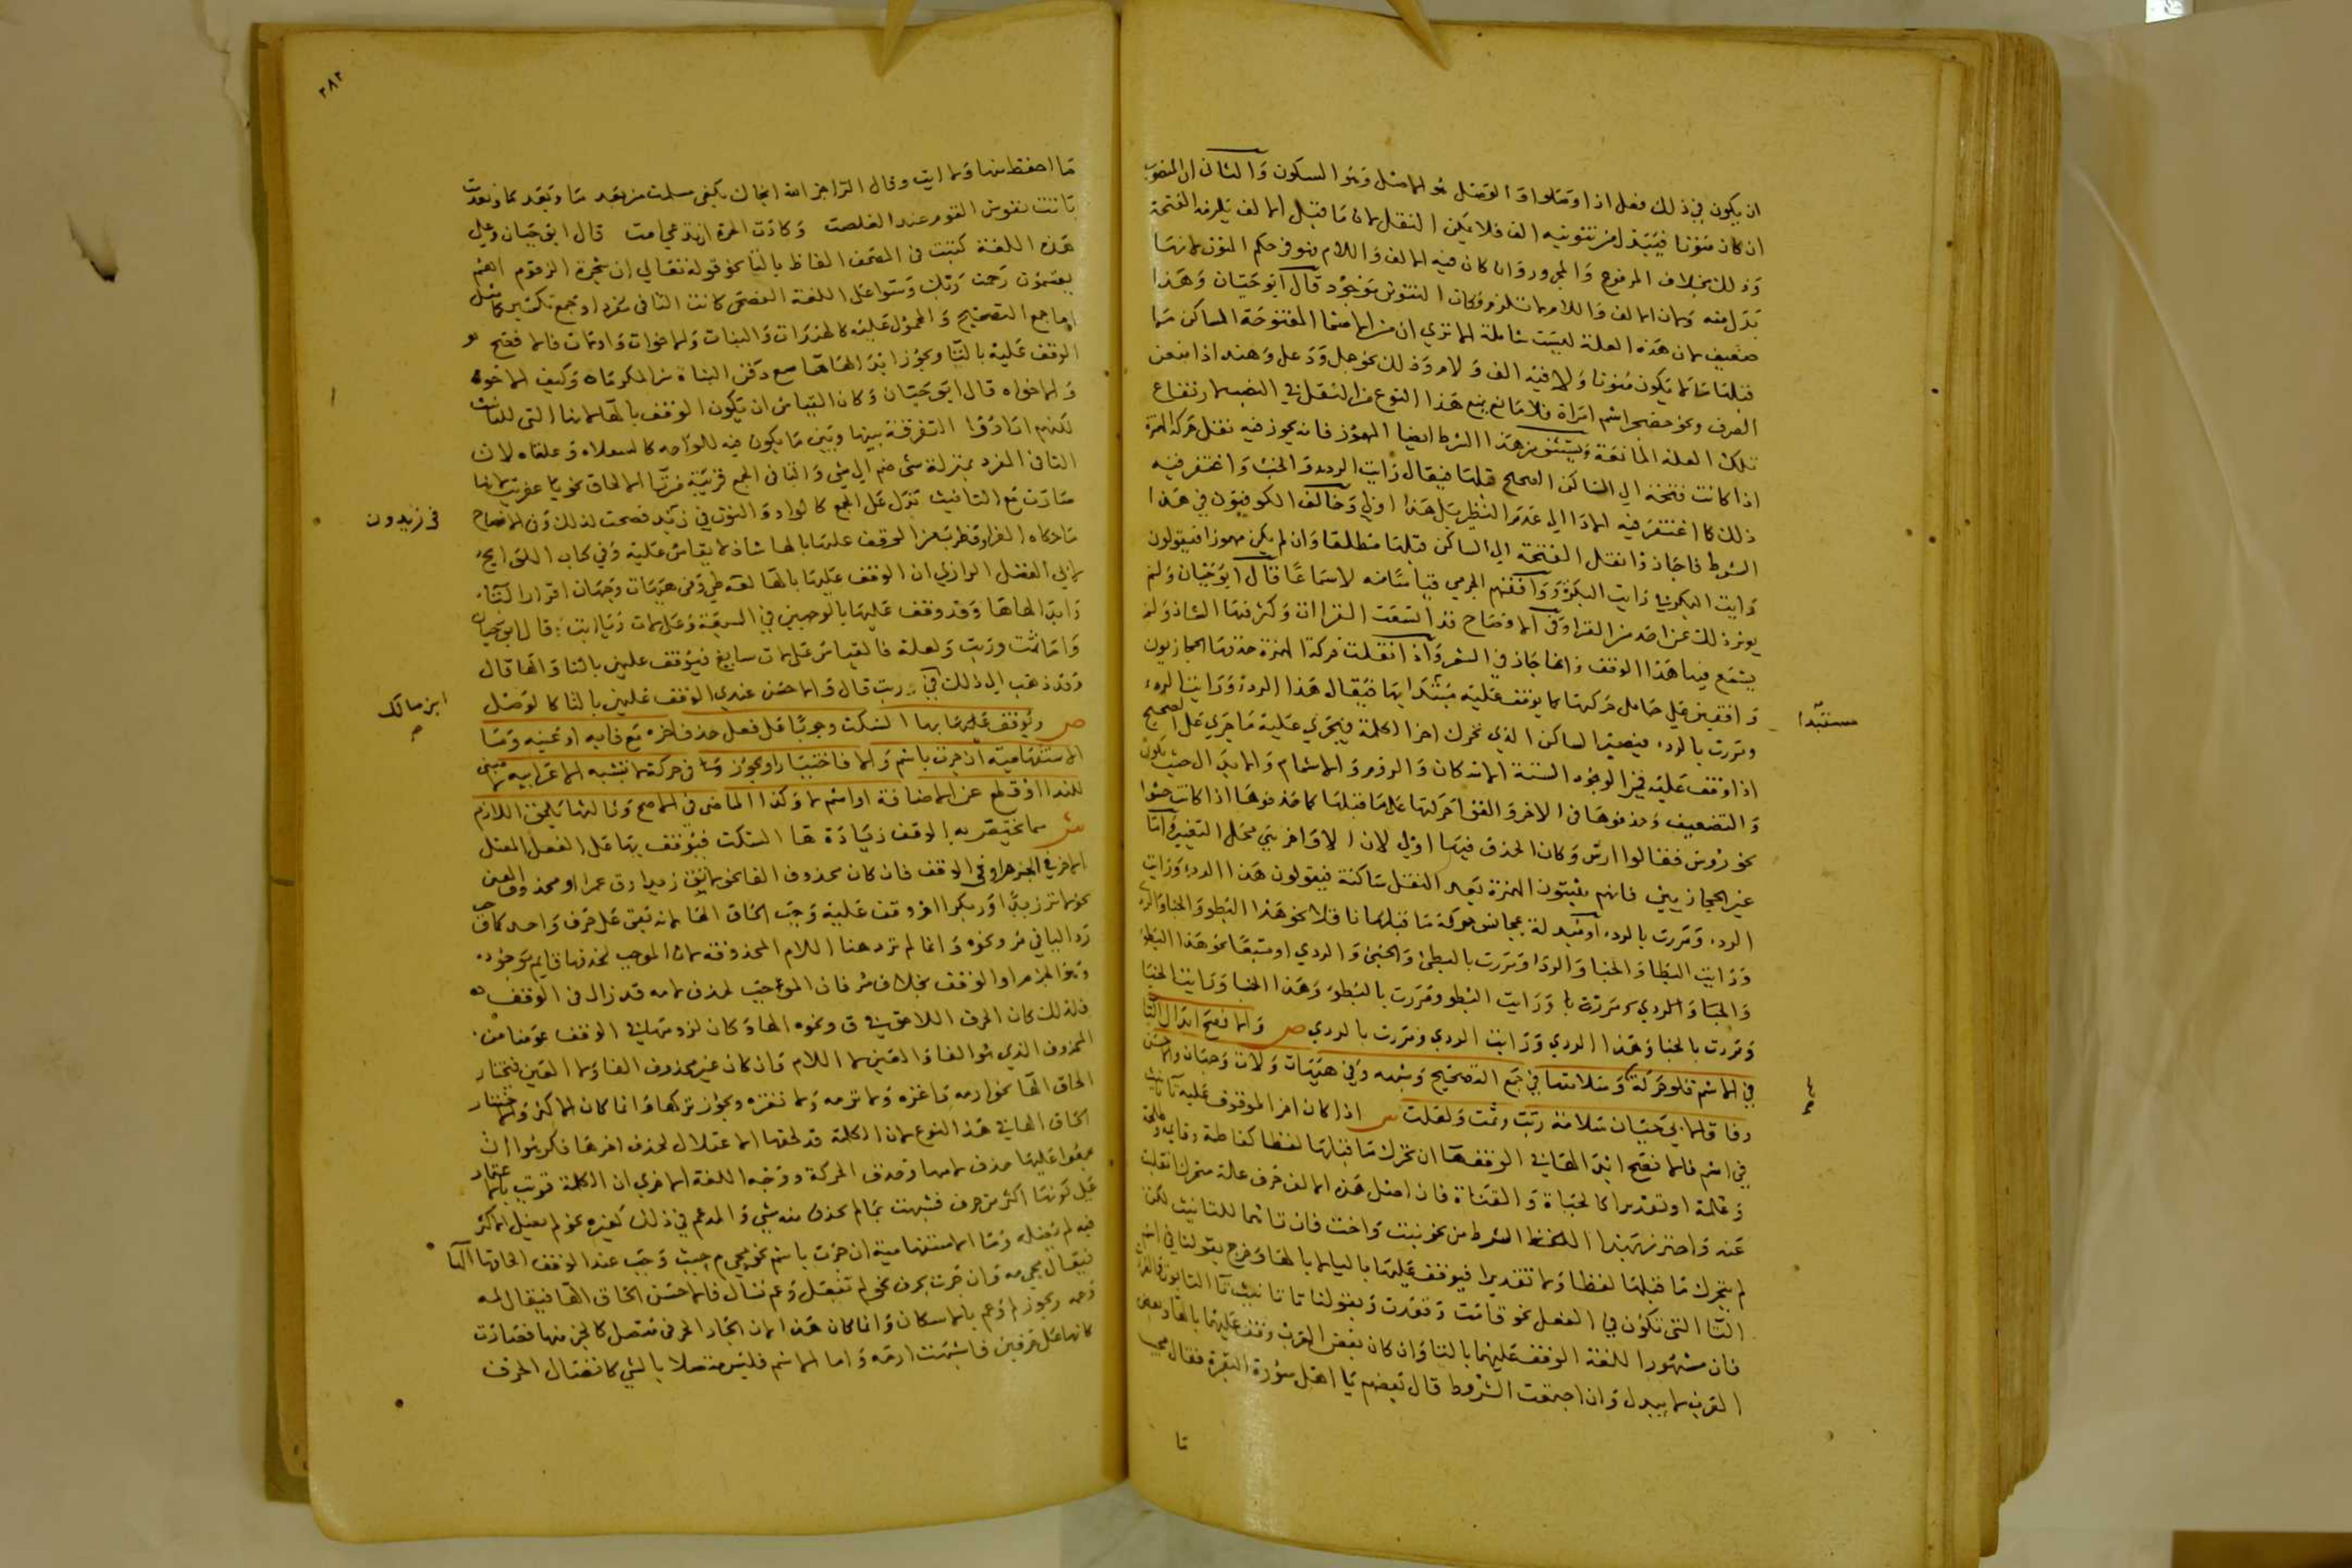 ان يكون في ذلك فعل اذا وصلوا والوصل هو الاصل وهو السكون والثاني ان المنصوب
ان كان منونا فيبدل من تنوينه الف فلا يمكن النقل لان ما قبل الالف يلزمه الفتحة
وذلك بخلاف المرفوع والمجرور وان كان فيه الالف واللام فهو في حكم المنون لانها
بدل منه ولان الالف واللام لا تلزم وكان التنوين موجود قال ابو حيان وهذا
ضعيف لان هذه العلة ليست شاملة الا ترى ان من الاسما المفتوحة الساكن ما
قبلها ما لا يكون منونا ولا فيه الف ولام وذلك نحو جمل ودعد وهند اذا منعن
الصرف ونحو حضجر اسم امراة فلا مانع يمنع هذا النوع من النقل في النصب لارتفاع
تلك العلة المانعة ويستثنى من هذا الشرط ايضا المهموز فانه يجوز فيه نقل حركة الهمزة
اذا كانت فتحة الي الساكن الصحيح قبلها فيقال رايت الردء والخبء واغتفر فيه
ذلك كما اغتفر فيه الادا الي عدم النظير بل هذا اولي وخالف الكوفيون في هذا
الشرط فاجازوا نقل الفتحة الي الساكن قبلها مطلقا وان لم يكن مهموزا فيقولون
رايت البكر في رايت البكر ووافقهم الجرمي قياسا منه لا سماعا قال ابو حيان ولم
يوثر ذلك عن احد من القرا وفي الاوضاح قد السعت القراات وكثر فيها الشاذ ولم
يسمع فيها هذا الوقف وانما جاز في الشعر واذا نقلت حركة الهمزة حذفها الحجازيون
واقفين علي حامل حركتها كما يوقف عليه مستبدا بها فيقال هذا الردء ورايت الردء
ومررت بالردء فيصير الساكن الذي تحرك اخر الكلمة فيجري عليه ما جري على الصحيح
اذا وقف عليه من الوجوه الستة الاسكان والروم والاشمام والابدال حيث يكون
والتضعيف وحذفوها في الاخر والقوا حركتها على ما قبلها كما حذفوها اذا كانت حشوا
نحو رؤس فقالوا ارس وكان الحذف فيها اولي لان الاواخر هي محل التغيير واما
غير الحجازيين فانهم يثبتون الهمزة بعد النقل ساكنة فيقولون هذا الردء ورايت
الردء ومررت بالردء او مبدلة بمجانس حركة ما قبلها ناقلا نحو هذا البطو والخبا والردو
ورايت البطا والخبا والردا ومررت بالبطئ والخبئ والردي او متبعا نحو هذا البطو
والخبا والردي ومررت با ورايت البطو ومررت بالبطو وهذا الخبا ورايت الخبا
ومررت بالخبا وهذا الردي ورايت الردي ومررت بالردي ص والافصح ابدال التا
في الاسم تلو حركة وسلامتها في جمع التصحيح وشبهه وفي هيهات ولات وحيان والاحسن
وفاقا لابي حيان سلامة ربت وثمت ولعلت ش اذا كان اخر الموقوف عليه تا تانيث
في اسم فالافصح ابدالها في الوقف ها ان تحرك ما قبلها لفظا كفاطمة وقايمة وطلحة
وقائمة او تقديرا كالحياة والقناة فان اصل هذه الالف حرف علة متحرك انقلبت
عنه واحترز بهذا الشرط من نحو بنت واخت فان تا هما للتانيث لكن
لم يتحرك ما قبلها لفظا ولا تقديرا فيوقف عليها بالتا لا بالها وخرج بقولنا في اسم
التا التي تكون في الفعل نحو قامت وقعدت وبقولنا تا تانيث تا التابوت والفرات
فان مشهور اللغة الوقف عليهما بالتا وان كان بعض العرب وقف عليهما بالها وبعض
العرب لا يبدل وان اجتمعت الشروط قال بعضهم يا اهل سورة البقرة فقال مجيب
تا
مستبدا
٣٨٢
ما احفظ منها ولا ايت وقال الراجز الله انجاك بكفي مسلمت من بعد ما وبعد ما وبعدمت
باتت نفوس القوم عند الغلصمت وكادت الحرة ان تدعي امت قال ابو حيان وعلي
هذه اللغة كتبت في المصحف الفاظ بالتا نحو قوله تعالي ان شجرة الزقوم اهم
يقسمون رحمت ربك وسوا على اللغة الفصحى كانت التا في مفرد او جمع تكسير كما مثل
اما جمع التصحيح والمحمول عليه كالهندات والبنات والاخوات واولات فالافصح
الوقف عليه بالتا ويجوز ابدالها ها سمع دفن البناه من المكرماه وكيف الاخوه
والاخواه قال ابو حيان وكان القياس ان تكون الوقف بالها لانها التي للتانيث
لكنهم ارادوا التفرقة بينها وبين ما يكون فيه للواحد كالسعلاه وعلقاه لان
التا في المفرد بمنزلة شي ضم الي شي والتا في الجمع قريبة من تا الالحاق نحو يا عفريت لانها
صارت مع التانيث تدل على الجمع كالواو والنون في زيد فصحت لذلك وفي الافصاح
ما حكاه الفرا وقطرب من الوقف عليها بالها شاذ لا يقاس عليه وفي كتاب اللوايح
لابي الفضل الرازي ان الوقف عليها بالها لغة طي وفي هيهات وجهان اقرار التاء
وابدالها ها وقد وقف عليها بالوجهين في السبعة وعلى لات ذيا ابت قال ابو حيان
واما ثمت وربت ولعلت فالقياس على لات سايغ فيوقف عليهن بالتا وانما قال
وقد ذهب الي ذلك في ربت قال والاحسن عندي الوقف عليهن بالتا كالوصل
ص ويوقف عليها بها السكت وجوبا على فعل حذف اخره مع فايه او عينه وما
الاستفهامية ان جرت باسم والا فاختيارا ويجوز في حركة لا تشبه الاعرابية لا مبنى
للندا او قطع عن الاضافة او اسم لا وكذا الماضي في الاصح وثالثها يلحق اللازم
ش مما يختص به الوقف زيادة ها السكت فيوقف بها على الفعل المعتل
الاخر في الجزم او في الوقف فان كان محذوف الفا نحو لا تق زيدا وق عمرا او محذوف العين
نحو لا تر زيدا او ر بكرا او وقف عليه وجب الحاق الها لانه بقي على حرف واحد كما في
رد اليا في مر ونحوه وانما لم ترد هنا اللام المحذوفة لان الموجب لحذفها قايم موجود
وهو الجزم او الوقف بخلاف مر فان الموجب لحذف لامه قد زال في الوقف
فلذلك كان الحرف اللاحق في ق ونحوه الها وكان لزومها في الوقف عوضا من
المحذوف الذي هو الفا والعين لا اللام وان كان غير محذوف الفا ولا العين فتختار
الحاق الها نحو ارمه واغزه ولا ترمه ولا تغزه ويجوز تركها وانما كان الاكثر والمختار
الحاق الها في هذا النوع لان الكلمة قد لحقها الاعتلال لحذف اخرها فكرهوا ان
يجمعوا عليها حذف لامها وحذف الحركة ووجه اللغة الاخري ان الكلمة قويت بالاعتماد
علي كونها اكثر من حرف فشبهت بما لم يحذف منه شي والمدغم في ذلك كغيره نحو لم يعتل الاكثر
فيه لم يعتله وما الاستفهامية ان جرت باسم نحو مجي م جيت وجب عند الوقف الحاقها الها
فيقال مجي مه وان جرت بحرف نحو لم تفعل وعم تسال فالاحسن الحاق الها فيقال لمه
وعمه ويجوز لم وعم بالاسكان وانما كان هذا لان الجار الحرفي متصل كالجزء منها فصارت
كانها على حرفين فاشبهت ارمه واما الاسم فليس متصلا بالشي كاتصال الحرف
في زيدون
ابن مالك